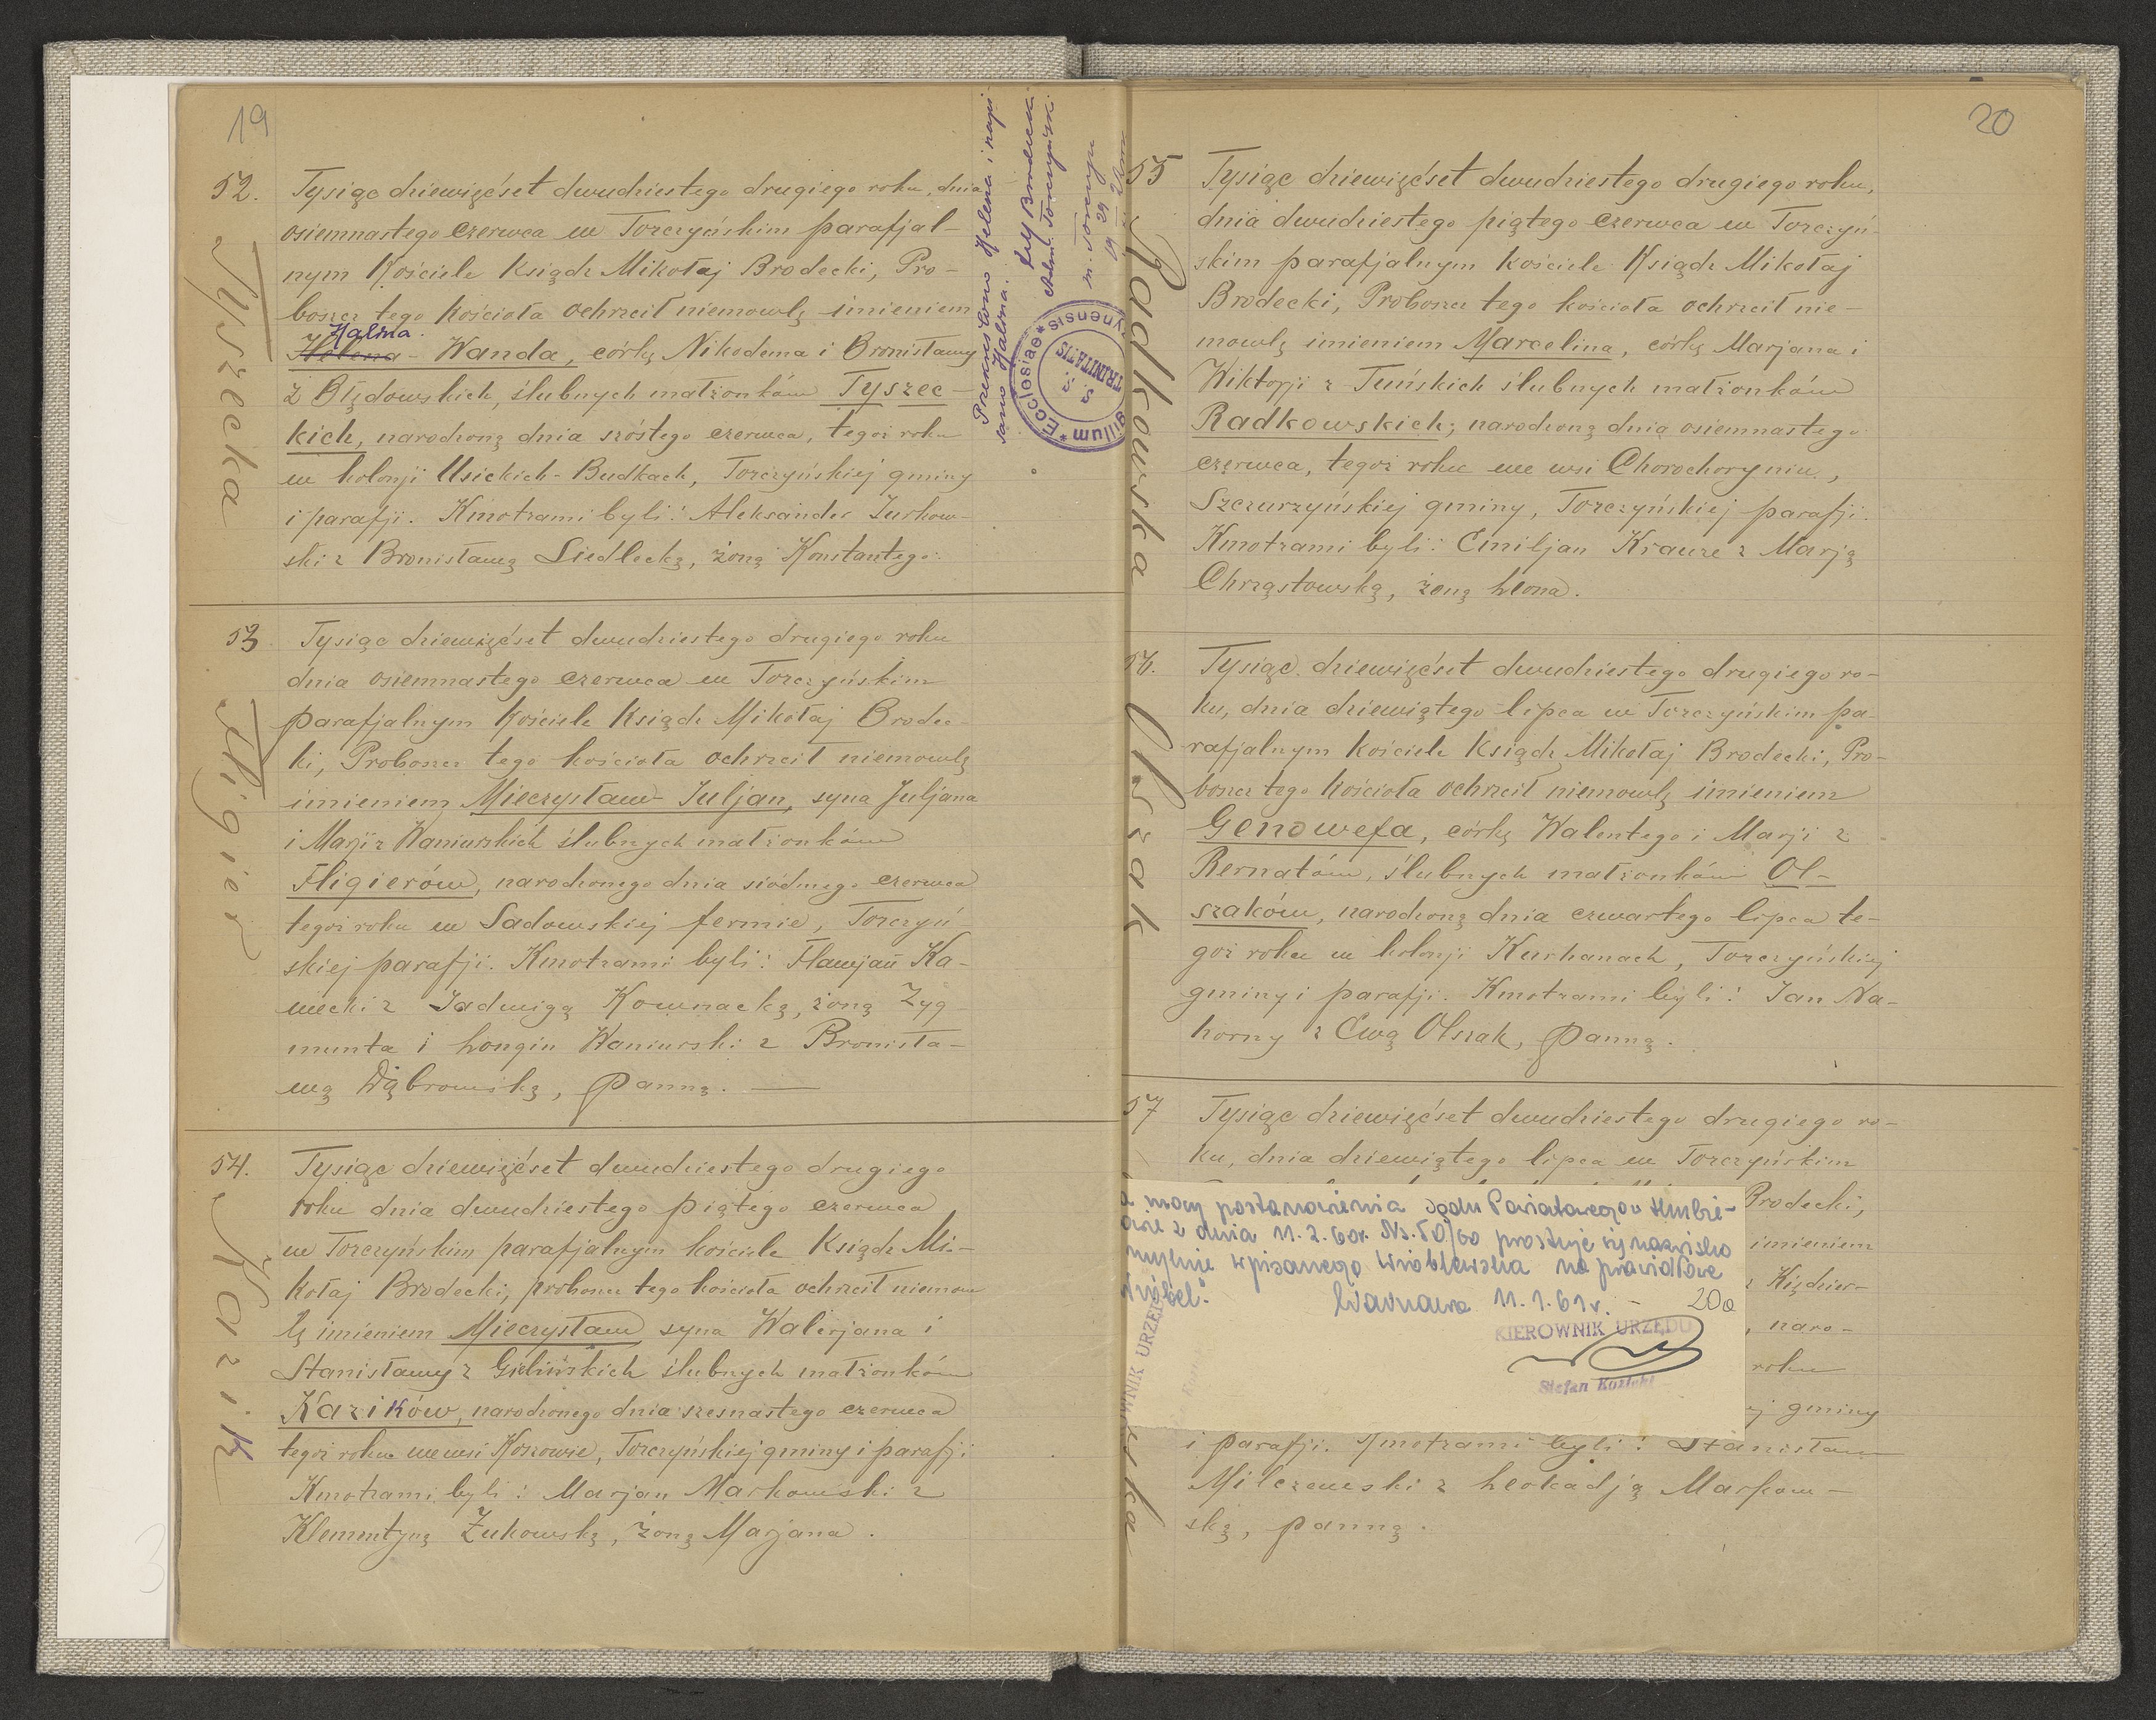 19
52.
Tyszecka
Tysiąc dziewięćset dwudziestego drugiego roku, dnia
osiemnastego czerwca w Torczyńskim parafjal-
nym Kościele Ksiądz Mikołaj Brodecki, Pro-
boszcz tego Kościoła ochrzcił niemowlę imieniem
Halina
Helena - Wanda, córkę Nikodema i Bronisławy
z Błędowskich, ślubnych małżonków Tyszec-
kich, narodzoną dnia szóstego czerwca, tegoż roku
w kolonji Usickich-Budkach, Torczyńskiej gminy
i parafji. Kmotrami byli: Aleksander Żurkow-
ski z Bronisławą Siedlecką, żoną Konstantego.
Przekreślono Helena i napi-
sano Halina.
Adm. Torczyński
m. Torczyn
Sigillum * Ecclesiae *
S. S. TRINITATIS
53
Fligier
Tysiąc dziewięćset dwudziestego drugiego roku
dnia osiemnastego czerwca w Torczyńskim
parafjalnym Kościele Ksiądz Mikołaj Brodec-
ki, Proboszcz tego kościoła ochrzcił niemowlę
imieniem Mieczysław-Juljan, syna Juljana
i Marji z Waniurskich ślubnych małżonków
Fligierów, narodzonego dnia siódmego czerwca
tegoż roku w Sadowskiej fermie, Torczyń
skiej parafji. Kmotrami byli: Flawjan Ka-
wecki z Jadwigą Kownacką, żoną Zyg-
munta i Longin Waniurski z Bronisła-
wą Dąbrowską, panną.
54.
Kazik
Tysiąc dziewięćset dwudziestego drugiego
roku dnia dwudziestego piątego czerwca
w Torczyńskim parafjalnym kościele Ksiądz Mi-
kołaj Brodecki, proboszcz tego kościoła ochrzcił niemow
lę imieniem Mieczysław syna Walerjana i
Stanisławy z Gielińskich ślubnych małżonków
Kazików, narodzonego dnia szesnastego czerwca
tegoż roku we wsi Koszowie, Torczyńskiej gminy i parafji
Kmotrami byli: Marjan Markowski z
Klementyną Żukowską, żoną Marjana.
20
55
Radkowska
Tysiąc dziewięćset dwudziestego drugiego roku,
dnia dwudziestego piątego czerwca w Torczyń-
skim parafjalnym kościele Ksiądz Mikołaj
Brodecki, Proboszcz tego kościoła ochrzcił nie-
mowlę imieniem Marcelina, córkę Marjana i
Wiktorji z Tuńskich ślubnych małżonków
Radkowskich; narodzoną dnia osiemnastego
czerwca, tegoż roku we wsi Chorochoryniu,
Szczurzyńskiej gminy, Torczyńskiej parafji.
Kmotrami byli: Emiljan Krauze z Marją
Chrząstowską, żoną Leona.
56.
Olszak
Tysiąc dziewięćset dwudziestego drugiego ro-
ku, dnia dziewiątego lipca w Torczyńskim pa-
rafjalnym kościele Ksiądz Mikołaj Brodecki, Pro-
boszcz tego kościoła ochrzcił niemowlę imieniem
Genowefa, córkę Walentego i Marji z
Bernatów, ślubnych małżonków Ol-
szaków, narodzoną dnia czwartego lipca te-
goż roku w kolonji Kurhanach, Torczyńskiej
gminy i parafji. Kmotrami byli: Jan Na-
horny z Ewą Olszak, panną.
57
Tysiąc dziewięćset dwudziestego drugiego ro-
ku, dnia dziewiątego lipca w Torczyńskim
Brodecki,
imieniem
naro-
roku
gminy
mocy postanowienia Sądu Powiatowego w Hrubie-
z dnia 11.2.60r. Ns.50/60 prostuje się nazwisko
mylnie wpisanego Wróblewska na prawidłowe
Wróbel".
Warszawa 11.1.61r. - 200
KIEROWNIK URZĘDU
Stefan Kozicki
i parafji. Kmotrami byli: Stanisław
Milczewski z Leokadją Markow-
ską, panną.